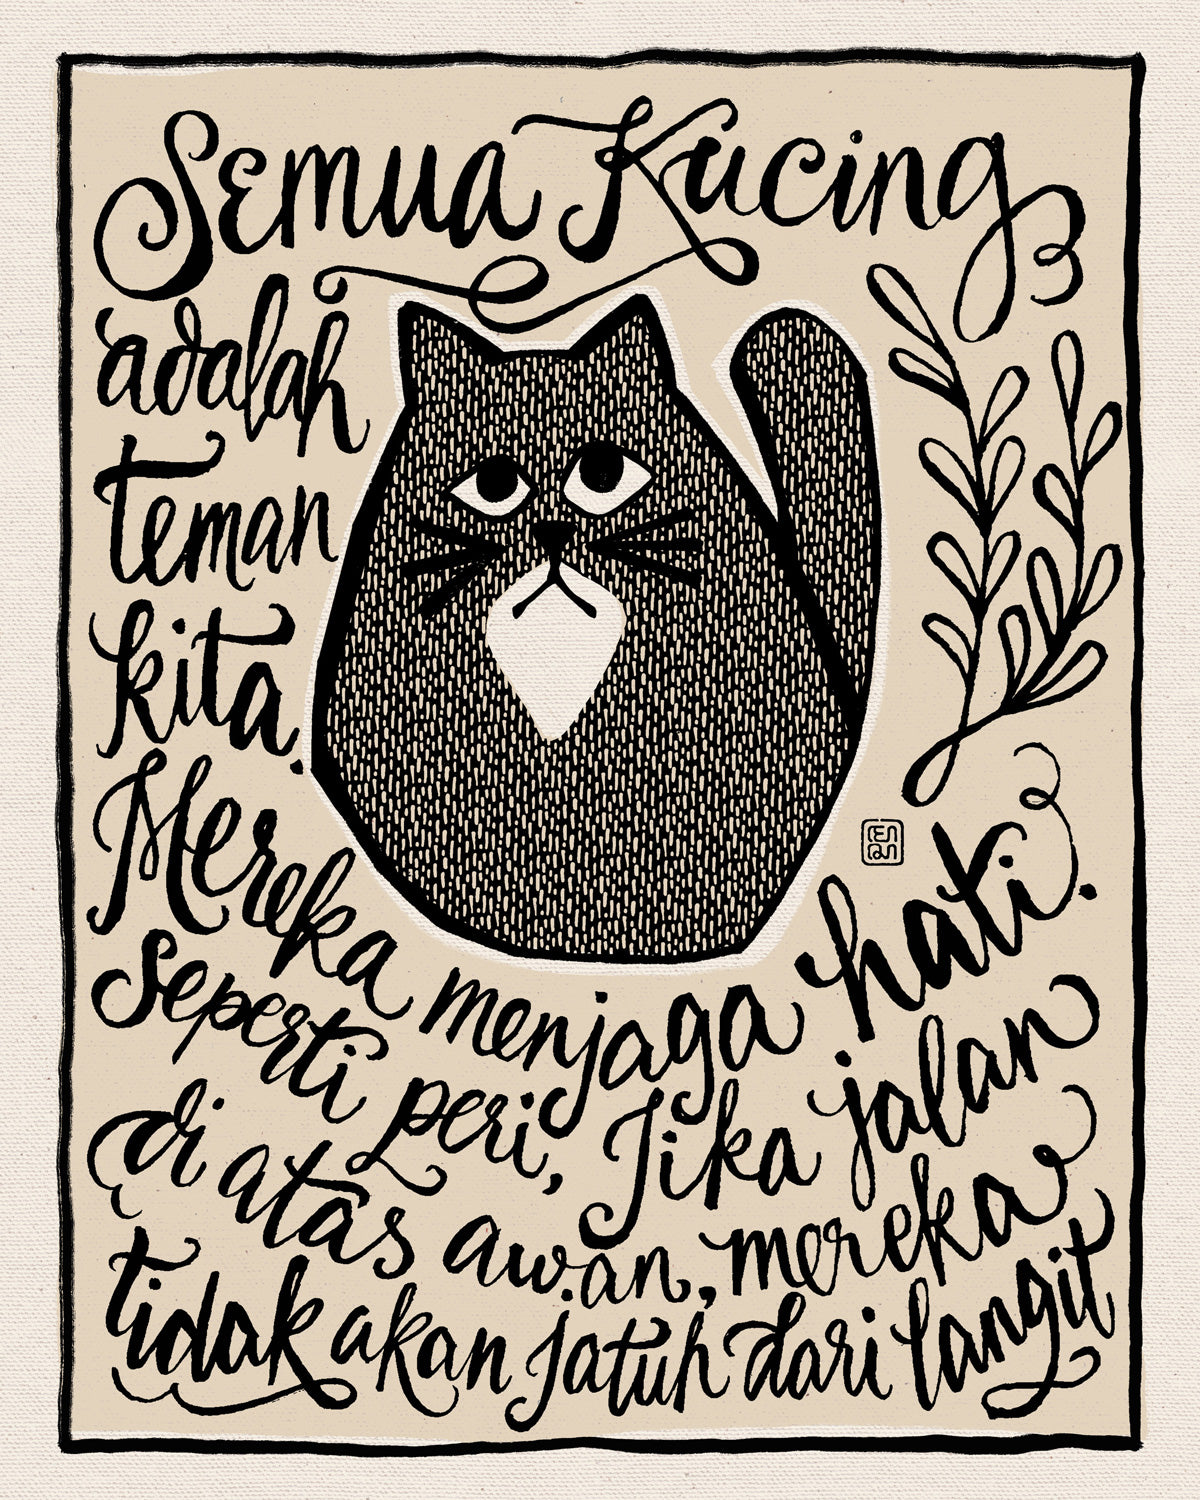 Semua Kucing
adalah
teman
kita.
Mereka menjaga hati.
Seperti peri, Jika jalan
di atas awan, mereka
tidak akan jatuh dari langit